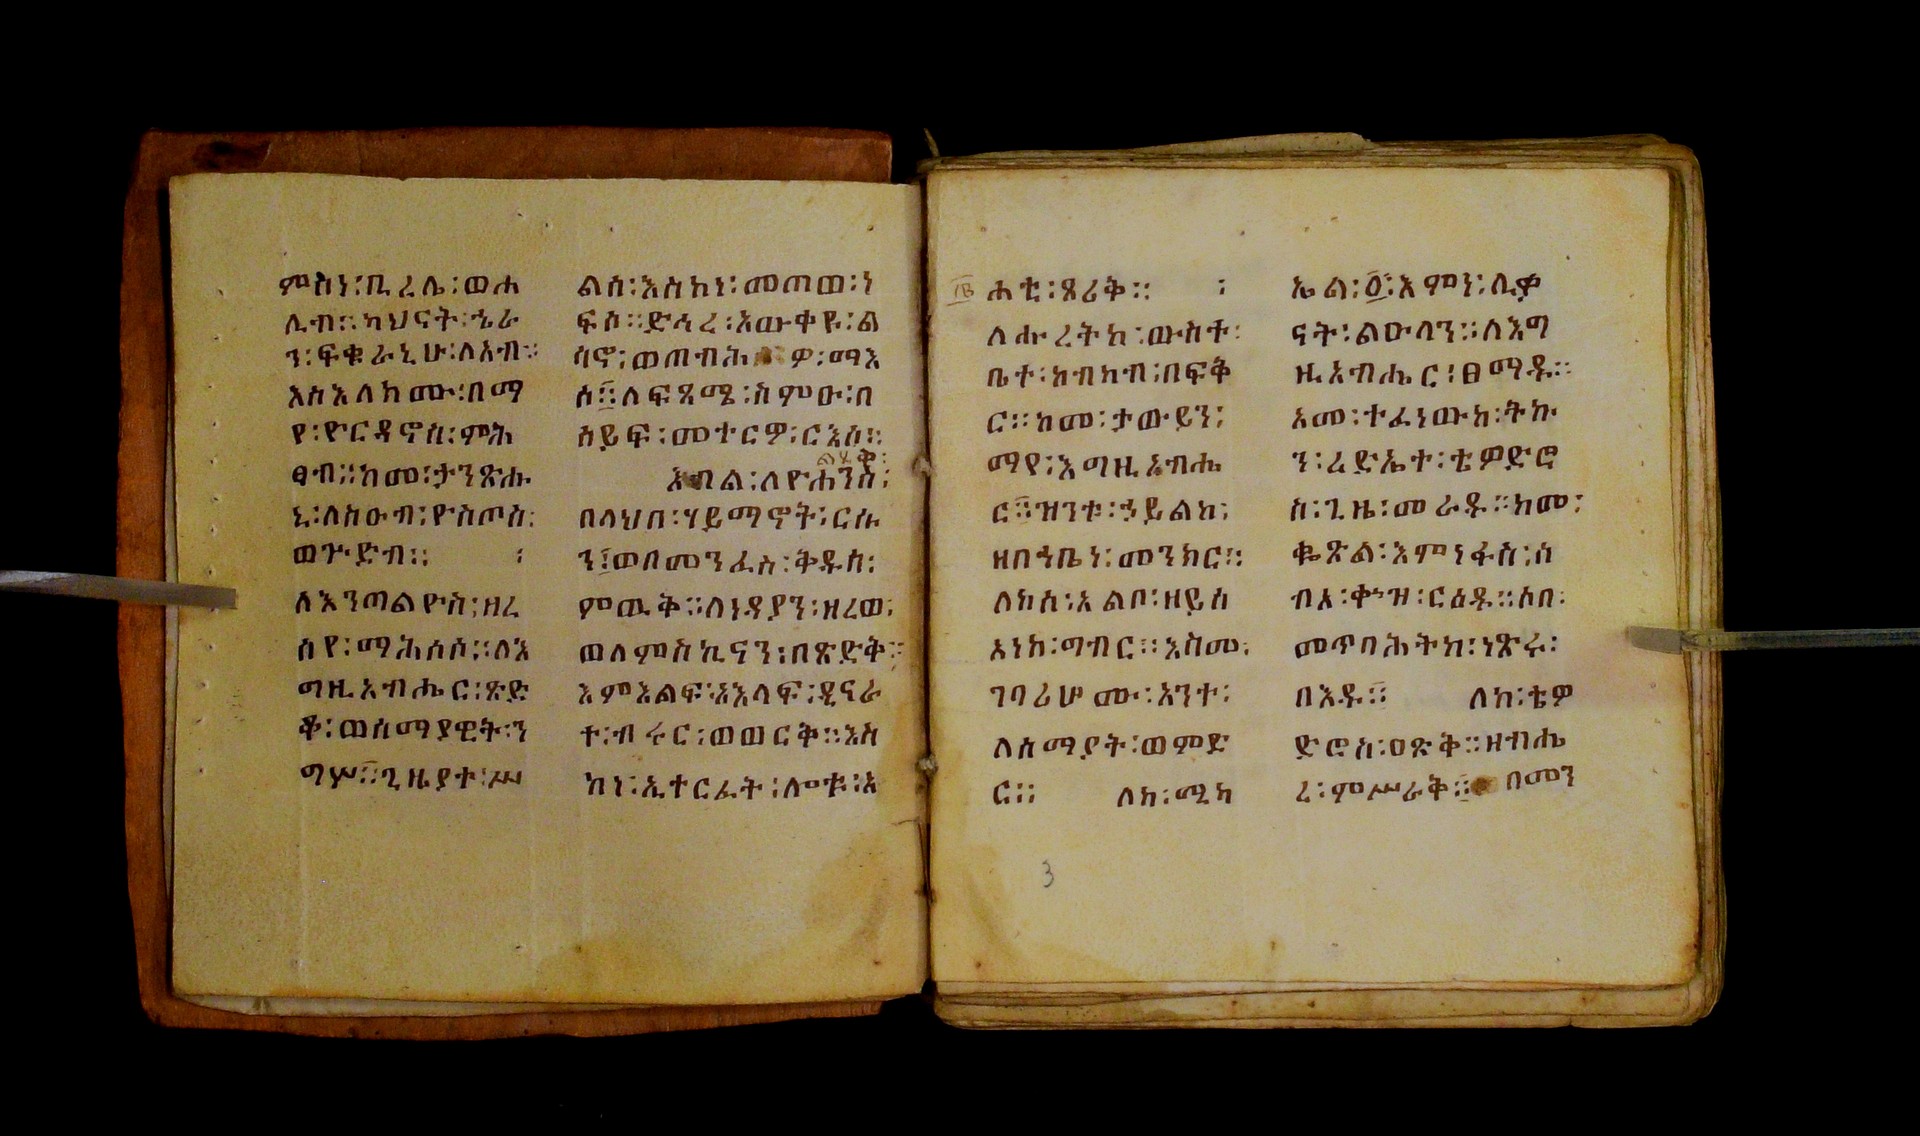 ምስነ፡ቢረሌ፡ወሐ
ሊብ።ካህናት፡ኄራ
ን፡ፍቁራኒሁ፡ለአብ።
እስእለክሙ፡በማ
የ፡ዮርዳኖስ፡ምሕ
ፀብ።ከመ፡ታንጽሑ
ኒ፡ለክዑብ፡ዮስጦስ፡
ወጕድብ። ፡
ለእንጣልዮስ፡ዘረ
ሰየ፡ማሕሰሰ።ለእ
ግዚአብሔር፡ጽድ
ቆ፡ወሰማያዊት፡ን
ግሦ።ጊዜያተ፡ሥ
ልስ፡እስከነ፡መጠወ፡ነ
ፍሶ።ድኅረ፡አውቀዩ፡ል
ሳኖ፡ወጠብሕ ዎ፡ማእ
ሰ።ለፍጻሜ፡ስምዑ፡በ
ሰይፍ፡መተርዎ፡ርእሰ።
ልሂቅ፡
እብል፡ለዮሐንስ፡
በላህበ፡ሃይማኖት፡ርሱ
ን፡ወበመንፈስ፡ቅዱስ፡
ምዉቅ።ለነዳያን፡ዘረወ፡
ወለምስኪናን፡በጽድቅ።
እምእልፍ፡አእላፍ፡ዲናራ
ተ፡ብሩር፡ወወርቅ።እስ
ከነ፡ኢተርፈት፡ሎቱ፡አ
ሐቲ፡ጸሪቅ። ፡
ለሑረትከ፡ውስተ፡
ቤተ፡ከብካብ፡በፍቅ
ር።ከመ፡ታውይን፡
ማየ፡እግዚአብሔ
ር።ዝንቱ፡ኃይልከ፡
ዘበኀቤነ፡መንክር።
ለክስ፡አልቦ፡ዘይስ
እነከ፡ግብር።እስመ፡
ገባሪሆሙ፡አንተ፡
ለሰማያት፡ወምድ
ር። ለከ፡ሚካ
ኤል፡፬፡እምነ፡ሊቃ
ናት፡ልዑላን።ለእግ
ዚአብሔር፡ፀማዱ።
አመ፡ተፈነውከ፡ትኩ
ን፡ረድኤተ፡ቴዎድሮ
ስ፡ጊዜ፡መራዱ።ከመ፡
ቈጽል፡እምነፋስ፡ሰ
ብአ፡ቍዝ፡ርዕዱ።ሶበ፡
መጥባሕትከ፡ነጽሩ፡
በእዱ። ለከ፡ቴዎ
ድሮስ፡ዐጽቅ።ዘብሔ
ረ፡ምሥራቅ። በመን
3